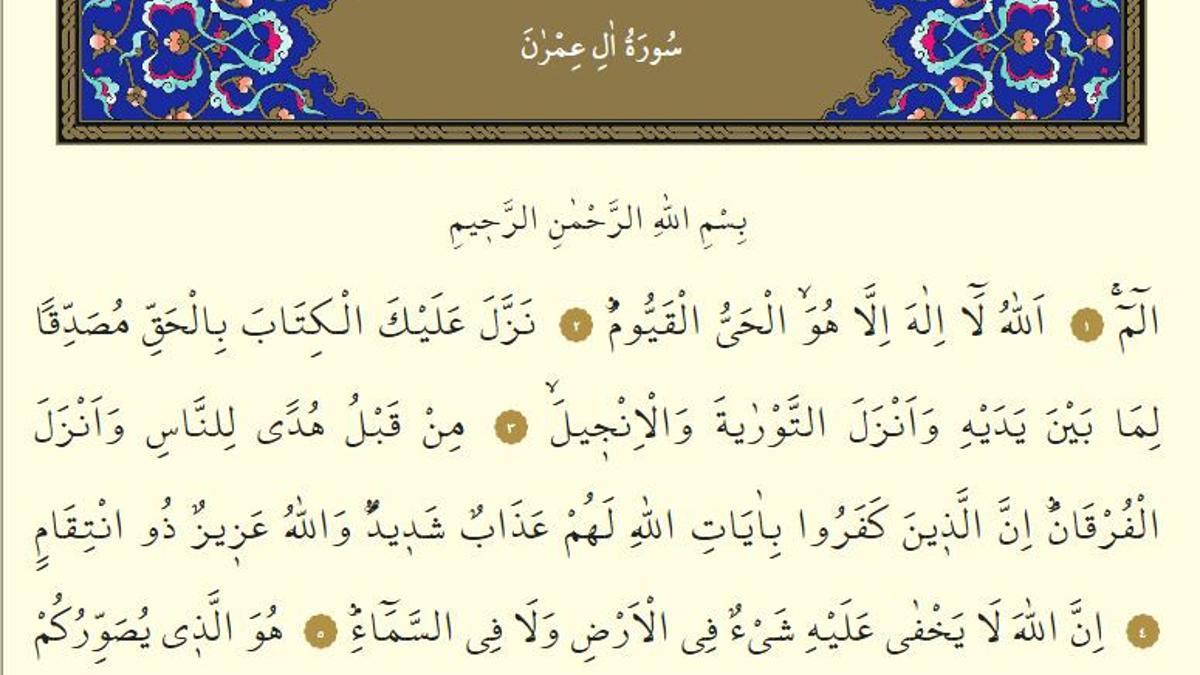 سُورَةُ اٰلِ عِمْرٰنَ
بِسْمِ اللهِ الرَّحْمٰنِ الرَّح۪يمِ
الٓمٓۚ ١ اَللهُ لَٓا اِلٰهَ اِلَّا هُوَۙ الْحَيُّ الْقَيُّومُۜ ٢ نَزَّلَ عَلَيْكَ الْكِتَابَ بِالْحَقِّ مُصَدِّقًا
لِمَا بَيْنَ يَدَيْهِ وَاَنْزَلَ التَّوْرٰيةَ وَالْاِنْج۪يلَۙ ٣ مِنْ قَبْلُ هُدًى لِلنَّاسِ وَاَنْزَلَ
الْفُرْقَانَۜ اِنَّ الَّذ۪ينَ كَفَرُوا بِاٰيَاتِ اللهِ لَهُمْ عَذَابٌ شَد۪يدٌۜ وَاللهُ عَز۪يزٌ ذُو انْتِقَامٍ
٤ اِنَّ اللهَ لَا يَخْفٰى عَلَيْهِ شَيْءٌ فِي الْاَرْضِ وَلَا فِي السَّمَٓاءِۜ ٥ هُوَ الَّذ۪ي يُصَوِّرُكُمْ